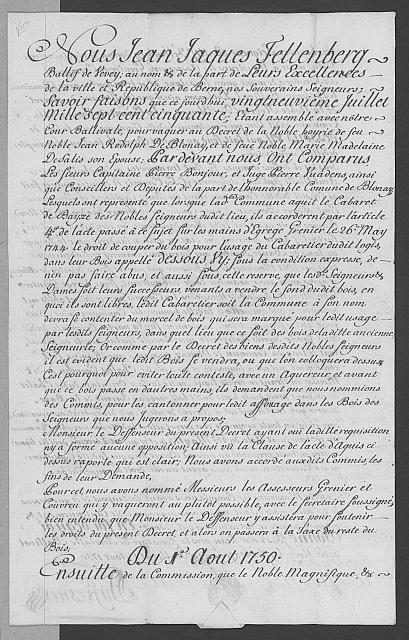 Nous Jean Jaques Fellenberg
Ballif de Vevey; au nom & de la part de Leurs Excellences
de la ville et République de Berne, nos Souverains Seigneurs;
Savoir faisons que ce jourdhui, vingtneuvième Juillet
Mille sept cent cinquante; Etant assemblé avec nôtre
Cour Ballivale, pour vaquer au Decret de la Noble hoyrie de feu
Noble Jean Rodolph De Blonay, et de feüe Noble Marie Madelaine
De Salis son Epouse, Pardevant nous, Ont Comparus
Les sieurs Capitaine Pierre Bonjour, et Juge Pierre Juadens, ainsi
que Conseillers et Députés de la part de l'honnorable Comune de Blonay
Lesquels ont représenté que lorsque lad. Commune aquit le Cabaret
de Bayze des Nobles Seigneurs dudit lieu, ils accorderent par l'article
4e de l'acte passé à ce sujet sur les mains d'Egrege Grenier le 26e May
1744 le droit de couper du bois pour l'usage du Cabaretier dudit logis,
dans leur Bois appellé dessous Vy; sous la condition expresse, de
n'en pas faire abus, et aussi sous cette reserve, que lesd. Seigneurs &
Dames soit leurs successeurs venants à vendre le fond dudit bois, en
quoi ils sont libres, ledit Cabaretier soit la Commune à son nom
devra se contenter du morcel de bois qui sera marqué pour ledit usage
par lesdits seigneurs, dans quel lieu que ce soit des bois de laditte ancienne
Seigneurie; Or comme par le Decret des biens desdits Nobles seigneurs
il est evident que ledit Bois se vendra, ou que l'on colloquera dessus
C'est pourquoi pour eviter toute conteste, avec un Aquereur, et avant
que ce bois passe en d'autres mains, ils demandent que nous nommions
des Commis, pour les cantonner pour ledit affouage dans les Bois des
Seigneurs que nous jugerons à propos;
Monsieur le Deffenseur du présent Decret ayant oui laditte requisition
n'y a formé aucune opposition; Ainsi vu la Clause de l'acte d'Aquis ci
dessus raporté qui est clair; Nous avons accordé auxdits Commis, les
fins de leur Demande,
Pour cet, nous avons nommé Messieurs les Assesseurs Grenier et
Couvreu qui y vaqueront au plutôt possible, avec le secretaire soussigné,
bien entendu que Monsieur le Deffenseur y assistera pour soutenir
les droits du present Decret, et alors on passera à la Taxe du reste du
Bois,
Du 1r Aout 1750.
Ensuitte de la Commission, que le Noble Magnifique, &